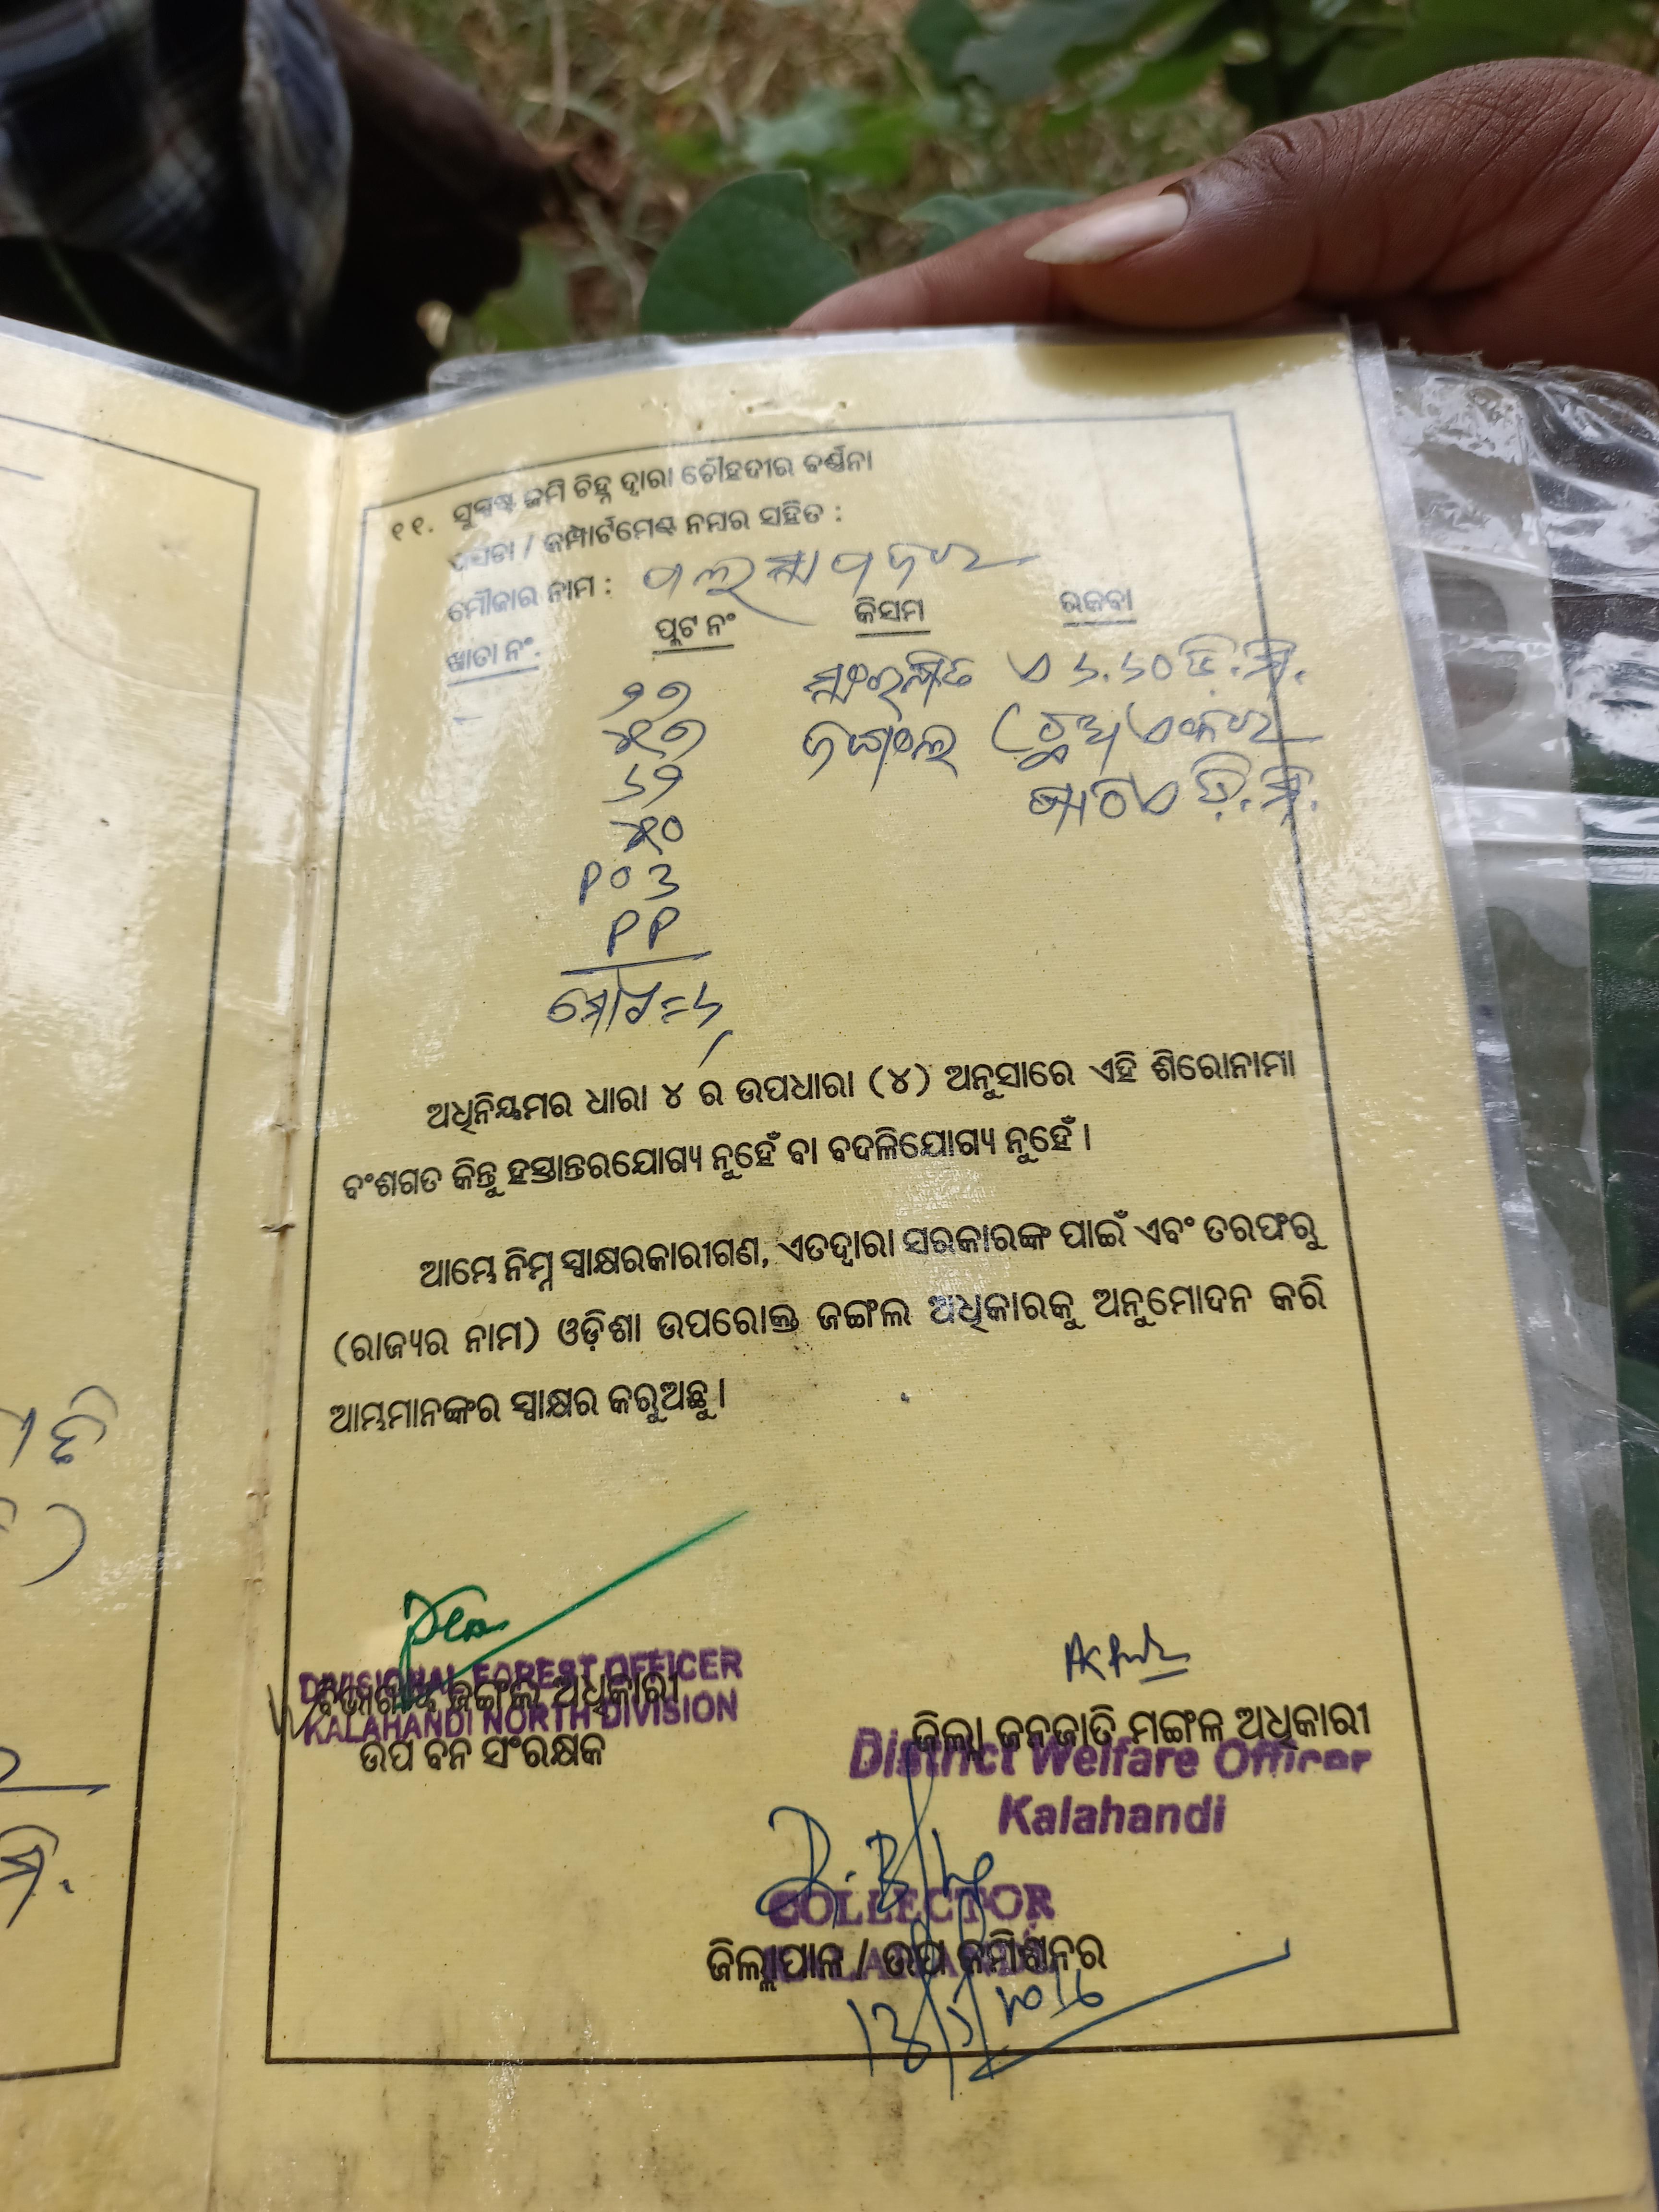 ୧୧. ସୁସ୍ପଷ୍ଟ ଜମି ଚିହ୍ନ ଦ୍ୱାରା ଚୌହଦୀର ବର୍ଣ୍ଣନା
ଖସଡା / କମ୍ପାର୍ଟମେଣ୍ଟ ନମ୍ବର ସହିତ :
ମୌଜାର ନାମ :
ଖାତା ନଂ. ପ୍ଲଟ ନଂ କିସମ ରକବା
୨୭ ଏ ୬.୬୦ ଡି.ମି.
୫୭ ଜଙ୍ଗଲ (ଛଅ ଏକର
୬୨ ଷାଠିଏ ଡି.ମି.
୫୦
୮୦୩
୮୮
ମୋଟ=୬
ଅଧିନିୟମର ଧାରା ୪ ର ଉପଧାରା (୪) ଅନୁସାରେ ଏହି ଶିରୋନାମା
ବଂଶଗତ କିନ୍ତୁ ହସ୍ତାନ୍ତରଯୋଗ୍ୟ ନୁହେଁ ବା ବଦଳିଯୋଗ୍ୟ ନୁହେଁ ।
ଆମ୍ଭେ ନିମ୍ନ ସ୍ୱାକ୍ଷରକାରୀଗଣ, ଏତଦ୍ୱାରା ସରକାରଙ୍କ ପାଇଁ ଏବଂ ତରଫରୁ
(ରାଜ୍ୟର ନାମ) ଓଡ଼ିଶା ଉପରୋକ୍ତ ଜଙ୍ଗଲ ଅଧିକାରକୁ ଅନୁମୋଦନ କରି
ଆମ୍ଭମାନଙ୍କର ସ୍ୱାକ୍ଷର କରୁଅଛୁ ।
DIVISIONAL FOREST OFFICER
ବିଭାଗୀୟ ଜଙ୍ଗଲ ଅଧିକାରୀ
KALAHANDI NORTH DIVISION
ଉପ ବନ ସଂରକ୍ଷକ
ଜିଲ୍ଲା ଜନଜାତି ମଙ୍ଗଳ ଅଧିକାରୀ
District Welfare Officer
Kalahandi
COLLECTOR
ଜିଲ୍ଲାପାଳ / ଉପ କମିଶନର